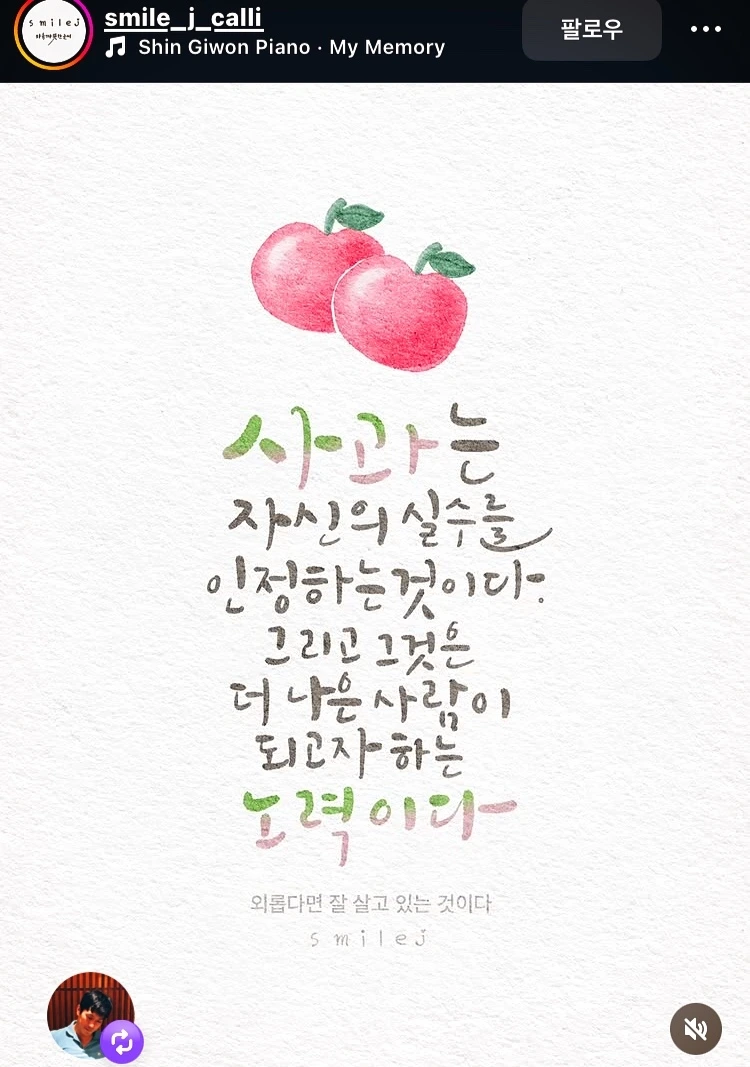 smile_j_calli
Shin Giwon Piano · My Memory
팔로우
smilej
사과는
자신의 실수를
인정하는것이다.
그리고 그것은
더 나은 사람이
되고자 하는
노력이다
외롭다면 잘 살고 있는 것이다
smilej